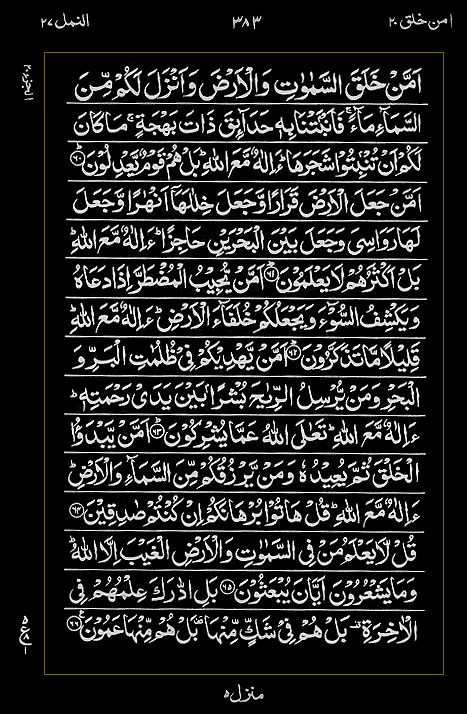 امن خلق ٢٠ ٣٨٣ النمل ٢٧
اَمَّنْ خَلَقَ السَّمٰوٰتِ وَالْاَرْضَ وَاَنْزَلَ لَكُمْ مِّنَ
السَّمَآءِ مَآءً ۚ فَاَنْۢبَتْنَا بِهٖ حَدَآئِقَ ذَاتَ بَهْجَةٍ ۚ مَا كَانَ
لَكُمْ اَنْ تُنْۢبِتُوْا شَجَرَهَا ؕ ءَاِلٰهٌ مَّعَ اللّٰهِ ؕ بَلْ هُمْ قَوْمٌ يَّعْدِلُوْنَ ؕ‏﴿۶۰﴾
اَمَّنْ جَعَلَ الْاَرْضَ قَرَارًا وَّجَعَلَ خِلٰلَهَاۤ اَنْهٰرًا وَّجَعَلَ
لَهَا رَوَاسِىَ وَجَعَلَ بَيْنَ الْبَحْرَيْنِ حَاجِزًا ؕ ءَاِلٰهٌ مَّعَ اللّٰهِ ؕ
بَلْ اَكْثَرُهُمْ لَا يَعْلَمُوْنَ ؕ‏﴿۶۱﴾ اَمَّنْ يُّجِيْبُ الْمُضْطَرَّ اِذَا دَعَاهُ
وَيَكْشِفُ السُّوْٓءَ وَيَجْعَلُكُمْ خُلَفَآءَ الْاَرْضِ ؕ ءَاِلٰهٌ مَّعَ اللّٰهِ ؕ
قَلِيْلًا مَّا تَذَكَّرُوْنَ ؕ‏﴿۶۲﴾ اَمَّنْ يَّهْدِيْكُمْ فِىْ ظُلُمٰتِ الْبَرِّ وَ
الْبَحْرِ وَمَنْ يُّرْسِلُ الرِّيٰحَ بُشْرًۢا بَيْنَ يَدَىْ رَحْمَتِهٖ ؕ
ءَاِلٰهٌ مَّعَ اللّٰهِ ؕ تَعٰلَى اللّٰهُ عَمَّا يُشْرِكُوْنَ ؕ‏﴿۶۳﴾ اَمَّنْ يَّبْدَؤُا
الْخَلْقَ ثُمَّ يُعِيْدُهٗ وَمَنْ يَّرْزُقُكُمْ مِّنَ السَّمَآءِ وَالْاَرْضِ ؕ
ءَاِلٰهٌ مَّعَ اللّٰهِ ؕ قُلْ هَاتُوْا بُرْهَانَكُمْ اِنْ كُنْتُمْ صٰدِقِيْنَ ‏﴿۶۴﴾
قُلْ لَّا يَعْلَمُ مَنْ فِى السَّمٰوٰتِ وَالْاَرْضِ الْغَيْبَ اِلَّا اللّٰهُ ؕ
وَمَا يَشْعُرُوْنَ اَيَّانَ يُبْعَثُوْنَ ‏﴿۶۵﴾ بَلِ ادّٰرَكَ عِلْمُهُمْ فِى
الْاٰخِرَةِ بَلْ هُمْ فِىْ شَكٍّ مِّنْهَا بَلْ هُمْ مِّنْهَا عَمُوْنَ ‏﴿۶۶﴾
منزل ۵